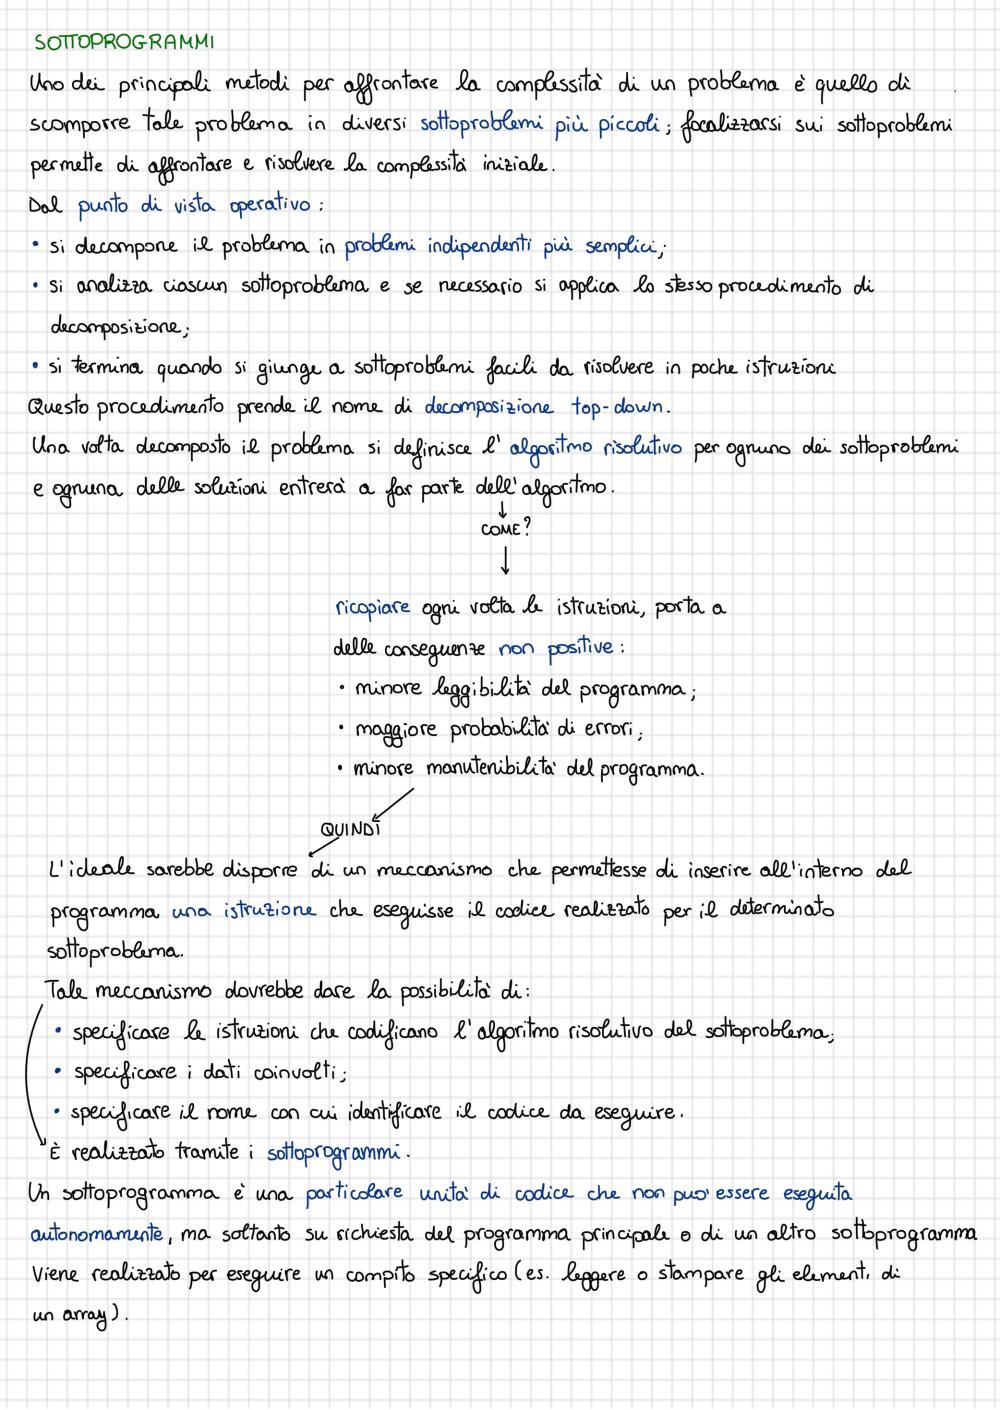 SOTTOPROGRAMMI
Uno dei principali metodi per affrontare la complessità di un problema è quello di
scomporre tale problema in diversi sottoproblemi più piccoli; focalizzarsi sui sottoproblemi
permette di affrontare e risolvere la complessità iniziale.
Dal punto di vista operativo:
• si decompone il problema in problemi indipendenti più semplici;
• si analizza ciascun sottoproblema e se necessario si applica lo stesso procedimento di
decomposizione;
• si termina quando si giunge a sottoproblemi facili da risolvere in poche istruzioni
Questo procedimento prende il nome di decomposizione top-down.
Una volta decomposto il problema si definisce l'algoritmo risolutivo per ognuno dei sottoproblemi
e ognuna delle soluzioni entrerà a far parte dell'algoritmo.
↓
COME?
↓
ricopiare ogni volta le istruzioni, porta a
delle conseguenze non positive:
• minore leggibilità del programma;
• maggiore probabilità di errori;
• minore manutenibilità del programma.
QUINDI
L'ideale sarebbe disporre di un meccanismo che permettesse di inserire all'interno del
programma una istruzione che eseguisse il codice realizzato per il determinato
sottoproblema.
Tale meccanismo dovrebbe dare la possibilità di:
• specificare le istruzioni che codificano l'algoritmo risolutivo del sottoproblema;
• specificare i dati coinvolti;
• specificare il nome con cui identificare il codice da eseguire.
È realizzato tramite i sottoprogrammi.
Un sottoprogramma è una particolare unità di codice che non può essere eseguita
autonomamente, ma soltanto su richiesta del programma principale o di un altro sottoprogramma
Viene realizzato per eseguire un compito specifico (es. leggere o stampare gli elementi di
un array).